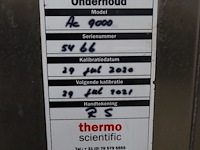 Onderhoud
Model
Ac 9000
Serienummer
5466
Kalibratiedatum
29 Jul 2020
Volgende kalibratie
29 Jul 2021
Handtekening
RS
thermo
scientific
Tel: +31 (0) 76 579 5555